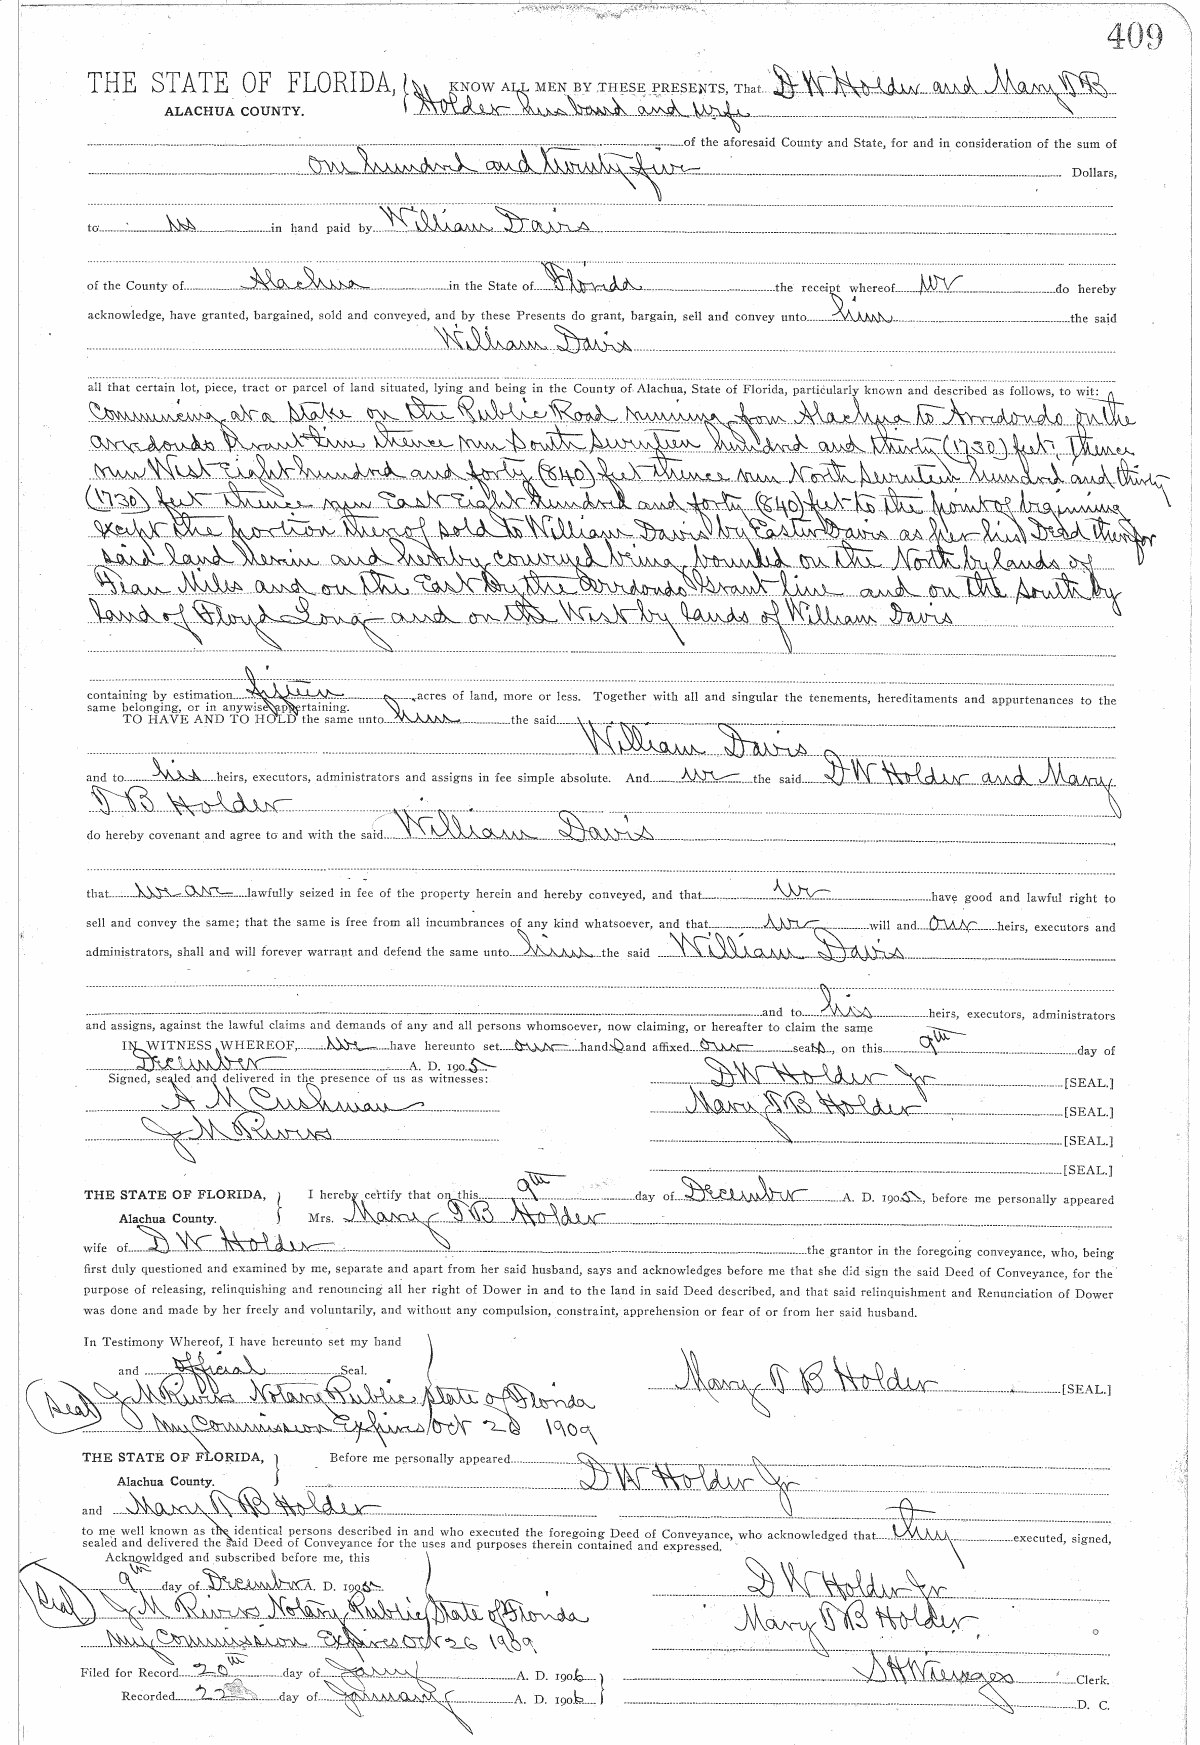 409
THE STATE OF FLORIDA, KNOW ALL MEN BY THESE PRESENTS, That D W Holder and Mary T B
ALACHUA COUNTY. Holder husband and wife
of the aforesaid County and State, for and in consideration of the sum of
One hundred and twenty five Dollars,
to us in hand paid by William Davis
of the County of Alachua in the State of Florida the receipt whereof we do hereby
acknowledge, have granted, bargained, sold and conveyed, and by these Presents do grant, bargain, sell and convey unto him the said
William Davis
all that certain lot, piece, tract or parcel of land situated, lying and being in the County of Alachua, State of Florida, particularly known and described as follows, to wit:
Commencing at a Stake on the Public Road running from Alachua to Arredondo on the
Arredondo Grant line thence run South Seventeen hundred and thirty (1730) feet. Thence
run West Eight hundred and forty (840) feet thence run North Seventeen hundred and thirty
(1730) feet thence run East Eight hundred and forty (840) feet to the point of beginning
except the portion thereof sold to William Davis by Easter Davis as per his Deed therefor
said land herein and hereby conveyed being bounded on the North by lands of
Miles and on the East by the Arredondo Grant line and on the South by
land of Floyd Long and on the West by lands of William Davis
containing by estimation fifteen acres of land, more or less. Together with all and singular the tenements, hereditaments and appurtenances to the
same belonging, or in anywise appertaining.
TO HAVE AND TO HOLD the same unto him the said
William Davis
and to his heirs, executors, administrators and assigns in fee simple absolute. And we the said D W Holder and Mary
T B Holder
do hereby covenant and agree to and with the said William Davis
that we are lawfully seized in fee of the property herein and hereby conveyed, and that we have good and lawful right to
sell and convey the same; that the same is free from all incumbrances of any kind whatsoever, and that we will and our heirs, executors and
administrators, shall and will forever warrant and defend the same unto him the said William Davis
and to his heirs, executors, administrators
and assigns, against the lawful claims and demands of any and all persons whomsoever, now claiming, or hereafter to claim the same
IN WITNESS WHEREOF, we have hereunto set our hands and affixed our seals, on this 9th day of
December A. D. 1905
Signed, sealed and delivered in the presence of us as witnesses: D W Holder Jr [SEAL.]
A M Cushman Mary T B Holder [SEAL.]
J M Rivers [SEAL.]
[SEAL.]
THE STATE OF FLORIDA, I hereby certify that on this 9th day of December A. D. 1905, before me personally appeared
Alachua County. Mrs. Mary T B Holder
wife of D W Holder the grantor in the foregoing conveyance, who, being
first duly questioned and examined by me, separate and apart from her said husband, says and acknowledges before me that she did sign the said Deed of Conveyance, for the
purpose of releasing, relinquishing and renouncing all her right of Dower in and to the land in said Deed described, and that said relinquishment and Renunciation of Dower
was done and made by her freely and voluntarily, and without any compulsion, constraint, apprehension or fear of or from her said husband.
In Testimony Whereof, I have hereunto set my hand
and official Seal. Mary T B Holder [SEAL.]
(Seal) J M Rivers Notary Public State of Florida
My Commission Expires Oct 26 1909
THE STATE OF FLORIDA, Before me personally appeared
Alachua County. D W Holder Jr
and Mary T B Holder
to me well known as the identical persons described in and who executed the foregoing Deed of Conveyance, who acknowledged that they executed, signed,
sealed and delivered the said Deed of Conveyance for the uses and purposes therein contained and expressed.
Acknowldged and subscribed before me, this
9th day of December A. D. 1905 D W Holder Jr
(Seal) J M Rivers Notary Public State of Florida Mary T B Holder
My Commission Expires Oct 26 1909
Filed for Record 20th day of Jany A. D. 1906 S H Wienges Clerk.
Recorded 22 day of January A. D. 1906 D. C.